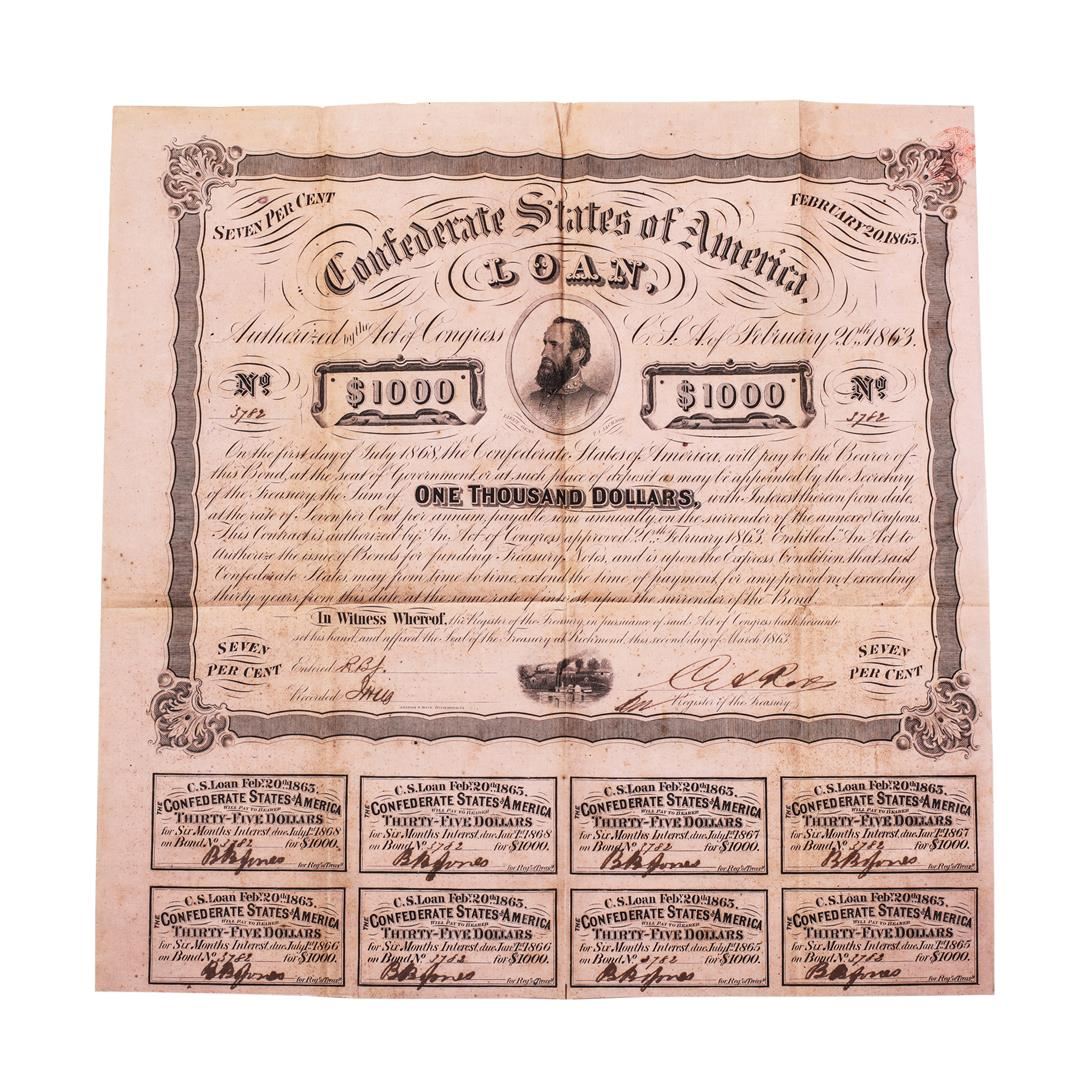 SEVEN PER CENT
FEBRUARY 20, 1863.
Confederate States of America,
LOAN,
Authorized by the Act of Congress C.S.A. of February 20th, 1863.
No No
3782 3782
$1000 $1000
On the first day of July 1868, the Confederate States of America, will pay to the Bearer of
this Bond, at the seat of Government, or at such place of deposit as may be appointed by the Secretary
of the Treasury, the Sum of ONE THOUSAND DOLLARS, with Interest thereon from date,
at the rate of Seven per Cent per annum, payable semi annually, on the surrender of the annexed Coupons.
This Contract is authorized by "An Act of Congress approved 20th February 1863, Entitled "An Act to
Authorize the issue of Bonds for funding Treasury Notes, and is upon the Express Condition, that said
Confederate States may from time to time, extend the time of payment, for any period not exceeding
thirty years, from this date, at the same rate of interest upon the surrender of the Bond.
In Witness Whereof, the Register of the Treasury, in pursuance of said Act of Congress, hath hereunto
set his hand, and affixed the Seal of the Treasury at Richmond, this second day of March 1863.
SEVEN
PER CENT
SEVEN
PER CENT
Entered
Recorded
Register of the Treasury
C.S. Loan Feby. 20th 1863.
THE CONFEDERATE STATES OF AMERICA
WILL PAY TO BEARER
THIRTY-FIVE DOLLARS
for Six Months Interest, due July 1st 1868
on Bond No 3782 for $1000.
for Regr of Treasy
C.S. Loan Feby. 20th 1863.
THE CONFEDERATE STATES OF AMERICA
WILL PAY TO BEARER
THIRTY-FIVE DOLLARS
for Six Months Interest, due Jany 1st 1868
on Bond No 3782 for $1000.
for Regr of Treasy
C.S. Loan Feby. 20th 1863.
THE CONFEDERATE STATES OF AMERICA
WILL PAY TO BEARER
THIRTY-FIVE DOLLARS
for Six Months Interest, due July 1st 1867
on Bond No 3782 for $1000.
for Regr of Treasy
C.S. Loan Feby. 20th 1863.
THE CONFEDERATE STATES OF AMERICA
WILL PAY TO BEARER
THIRTY-FIVE DOLLARS
for Six Months Interest, due Jany 1st 1867
on Bond No 3782 for $1000.
for Regr of Treasy
C.S. Loan Feby. 20th 1863.
THE CONFEDERATE STATES OF AMERICA
WILL PAY TO BEARER
THIRTY-FIVE DOLLARS
for Six Months Interest, due July 1st 1866
on Bond No 3782 for $1000.
for Regr of Treasy
C.S. Loan Feby. 20th 1863.
THE CONFEDERATE STATES OF AMERICA
WILL PAY TO BEARER
THIRTY-FIVE DOLLARS
for Six Months Interest, due Jany 1st 1866
on Bond No 3782 for $1000.
for Regr of Treasy
C.S. Loan Feby. 20th 1863.
THE CONFEDERATE STATES OF AMERICA
WILL PAY TO BEARER
THIRTY-FIVE DOLLARS
for Six Months Interest, due July 1st 1865
on Bond No 3782 for $1000.
for Regr of Treasy
C.S. Loan Feby. 20th 1863.
THE CONFEDERATE STATES OF AMERICA
WILL PAY TO BEARER
THIRTY-FIVE DOLLARS
for Six Months Interest, due Jany 1st 1865
on Bond No 3782 for $1000.
for Regr of Treasy